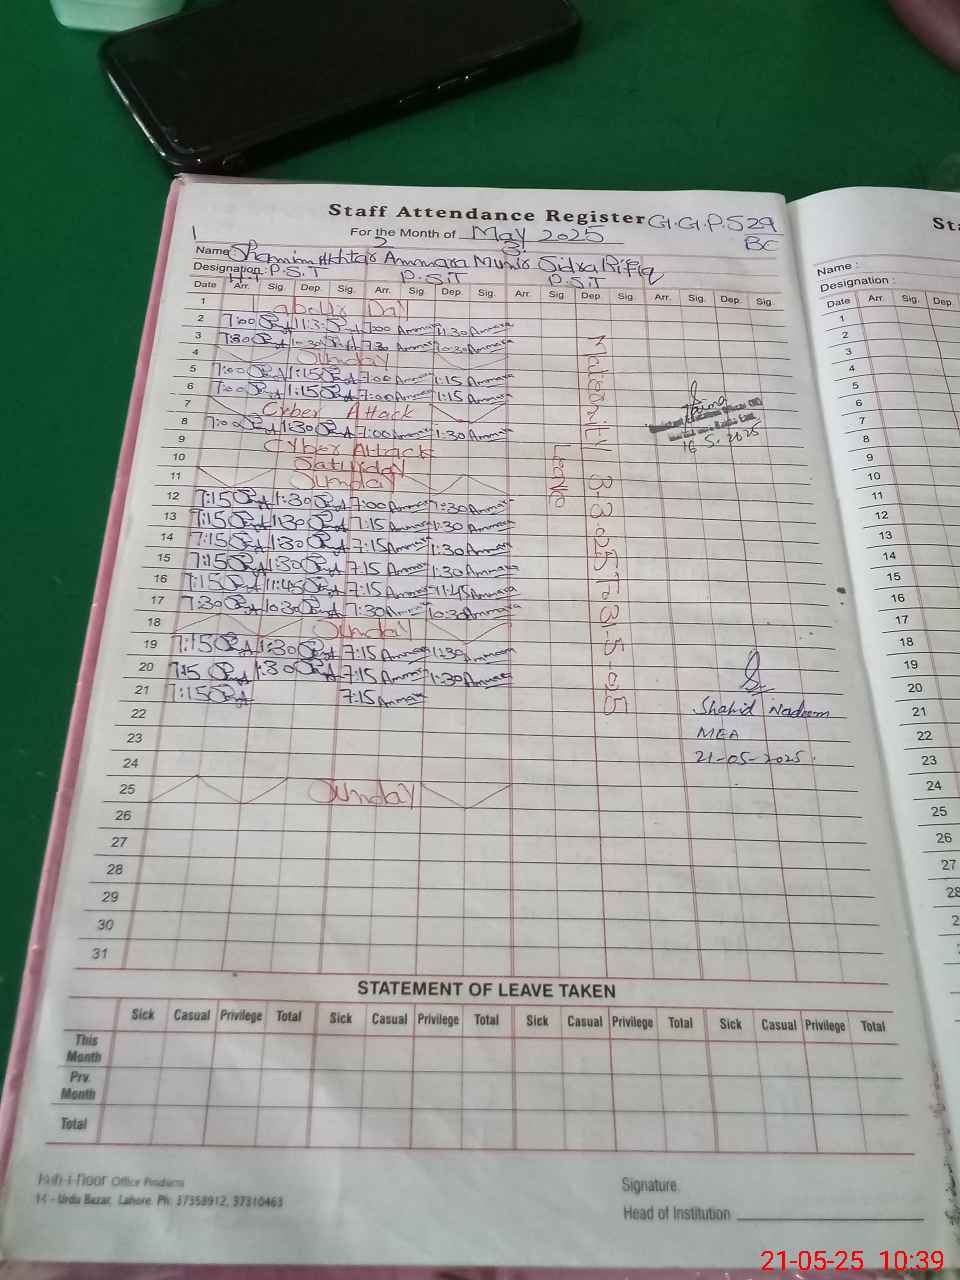 Staff Attendance Register G.G.P.S 29
BC
For the Month of May 2025
1 2 3.
Name: Shamim Akhtar Ammara Munir Sidra Rifiq
Designation: P.S.T P.S.T P.S.T
Date Arr. Sig. Dep. Sig. Arr. Sig. Dep. Sig. Arr. Sig Dep. Sig. Arr. Sig. Dep. Sig.
1 Day
2 7:00 11:3 7:00 Ammara 11:30 Ammara
3 7:30 10:30 7:30 Ammara 10:30 Ammara
4 Sunday
5 7:00 1:15 7:00 Ammara 1:15 Ammara
6 7:00 1:15 7:00 Ammara 1:15 Ammara
7 Cyber Attack
8 7:00 1:30 7:00 Ammara 1:30 Ammara
9 Cyber Attack
10 Saturday
11 Sunday
12 7:15 1:30 7:00 Ammara 1:30 Ammara
13 7:15 1:30 7:15 Ammara 1:30 Ammara
14 7:15 1:30 7:15 Ammara 1:30 Ammara
15 7:15 1:30 7:15 Ammara 1:30 Ammara
16 7:15 11:45 7:15 Ammara 11:45 Ammara
17 7:30 10:30 7:30 Ammara 10:30 Ammara
18 Sunday
19 7:15 1:30 7:15 Ammara 1:30 Ammara
20 7:15 1:30 7:15 Ammara 1:30 Ammara
21 7:15 7:15 Ammara
22
23
24
25 Sunday
26
27
28
29
30
31
Maternity 3-3-025 To 31-5-025
Leave
16.5.2025
Shahid Nadeem
MEA
21-05-2025.
STATEMENT OF LEAVE TAKEN
Sick Casual Privilege Total Sick Casual Privilege Total Sick Casual Privilege Total Sick Casual Privilege Total
This Month
Prv. Month
Total
Office Products
14 - Urdu Bazar, Lahore. Ph: 37358912, 37310463
Signature
Head of Institution
Name :
Designation :
Date Arr. Sig. Dep.
1
2
3
4
5
6
7
8
9
10
11
12
13
14
15
16
17
18
19
20
21
22
23
24
25
26
27
21-05-25 10:39